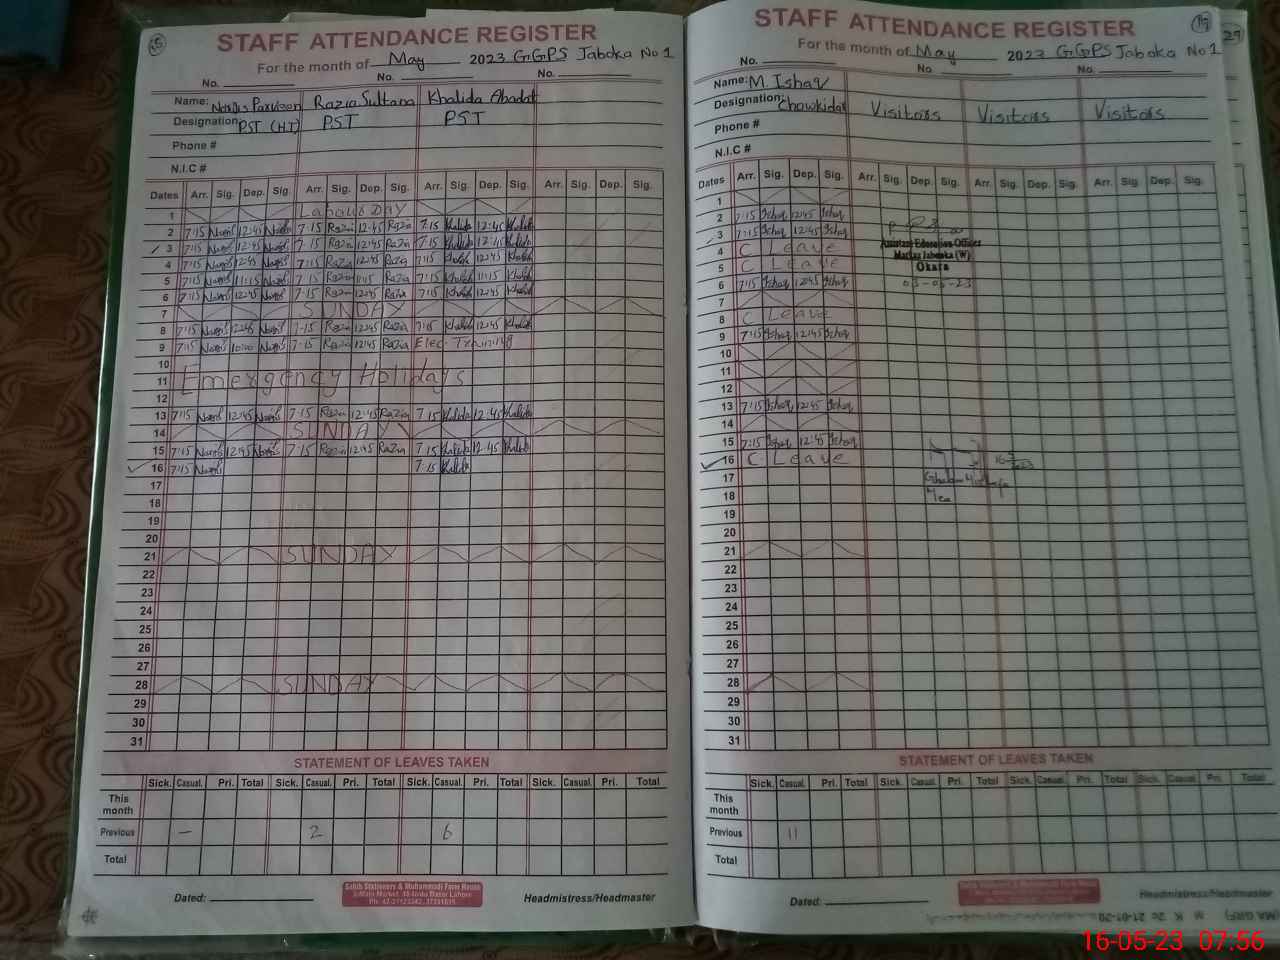 STAFF ATTENDANCE REGISTER
For the month of May 2023 GGPS Jaboka No 1
No. No. No.
Name: Razia Sultana Khalida
Designation: PST (HT) PST PST
Phone #
N.I.C #
Dates Arr. Sig. Dep. Sig. Arr. Sig. Dep. Sig. Arr. Sig. Dep. Sig. Arr. Sig. Dep. Sig.
1 DAY
2 7:15 12:45 7:15 Razia 12:45 Razia 7:15 Khalida 12:45 Khalida
3 7:15 12:45 7:15 Razia 12:45 Razia 7:15 Khalida 12:45 Khalida
4 7:15 12:45 7:15 Razia 12:45 Razia 7:15 Khalida 12:45 Khalida
5 7:15 11:15 7:15 Razia 11:15 Razia 7:15 Khalida 11:15 Khalida
6 7:15 12:45 7:15 Razia 12:45 Razia 7:15 Khalida 12:45 Khalida
7 SUNDAY
8 7:15 12:45 7:15 Razia 12:45 Razia 7:15 Khalida 12:45 Khalida
9 7:15 10:00 7:15 Razia 12:45 Razia Elec. Training
10
11 Emergency Holidays
12
13 7:15 12:45 7:15 Razia 12:45 Razia 7:15 Khalida 12:45 Khalida
14 SUNDAY
15 7:15 12:45 7:15 Razia 12:45 Razia 7:15 Khalida 12:45 Khalida
16 7:15 7:15 Khalida
17
18
19
20
21 SUNDAY
22
23
24
25
26
27
28 SUNDAY
29
30
31
STATEMENT OF LEAVES TAKEN
Sick. Casual. Pri. Total Sick. Casual. Pri. Total Sick. Casual. Pri. Total Sick. Casual. Pri. Total
This month
Previous – 2 6
Total
Dated: Headmistress/Headmaster
STAFF ATTENDANCE REGISTER
For the month of May 2023 GGPS Jaboka No 1
No. No. No.
Name: M. Ishaq
Designation: Chowkidar Visitors Visitors Visitors
Phone #
N.I.C #
Dates Arr. Sig. Dep. Sig. Arr. Sig. Dep. Sig. Arr. Sig. Dep. Sig. Arr. Sig. Dep. Sig.
1
2 7:15 Ishaq 12:45 Ishaq
3 7:15 Ishaq 12:45 Ishaq
4 C Leave
5 C Leave
6 7:15 Ishaq 12:45 Ishaq
Assistant Education Officer
Markaz Jabooka (W)
Okara
03-05-23
7
8 C Leave
9 7:15 Ishaq 12:45 Ishaq
10
11
12
13 7:15 Ishaq 12:45 Ishaq
14
15 7:15 Ishaq 12:45 Ishaq
16 C. Leave
17
18
19
20
21
22
23
24
25
26
27
28
29
30
31
STATEMENT OF LEAVES TAKEN
Sick. Casual. Pri. Total Sick. Casual. Pri. Total Sick. Casual. Pri. Total Sick. Casual. Pri. Total
This month
Previous 11
Total
Dated: Headmistress/Headmaster
16-05-23 07:56